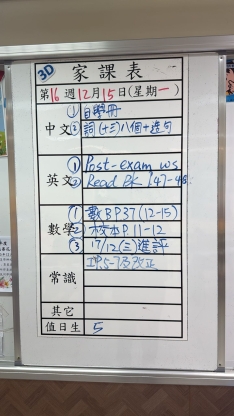 3D
家課表
第16週12月15日(星期一)
中文 ① 自學冊
② 詞(十三)八個+造句
英文 ① Post-exam ws
② Read Bk
數學 ① 數3B P37 (12-15)
② 校本P. 11-12
③ 17/12(三)進評
常識 P.5-7及改正
其它
值日生 5